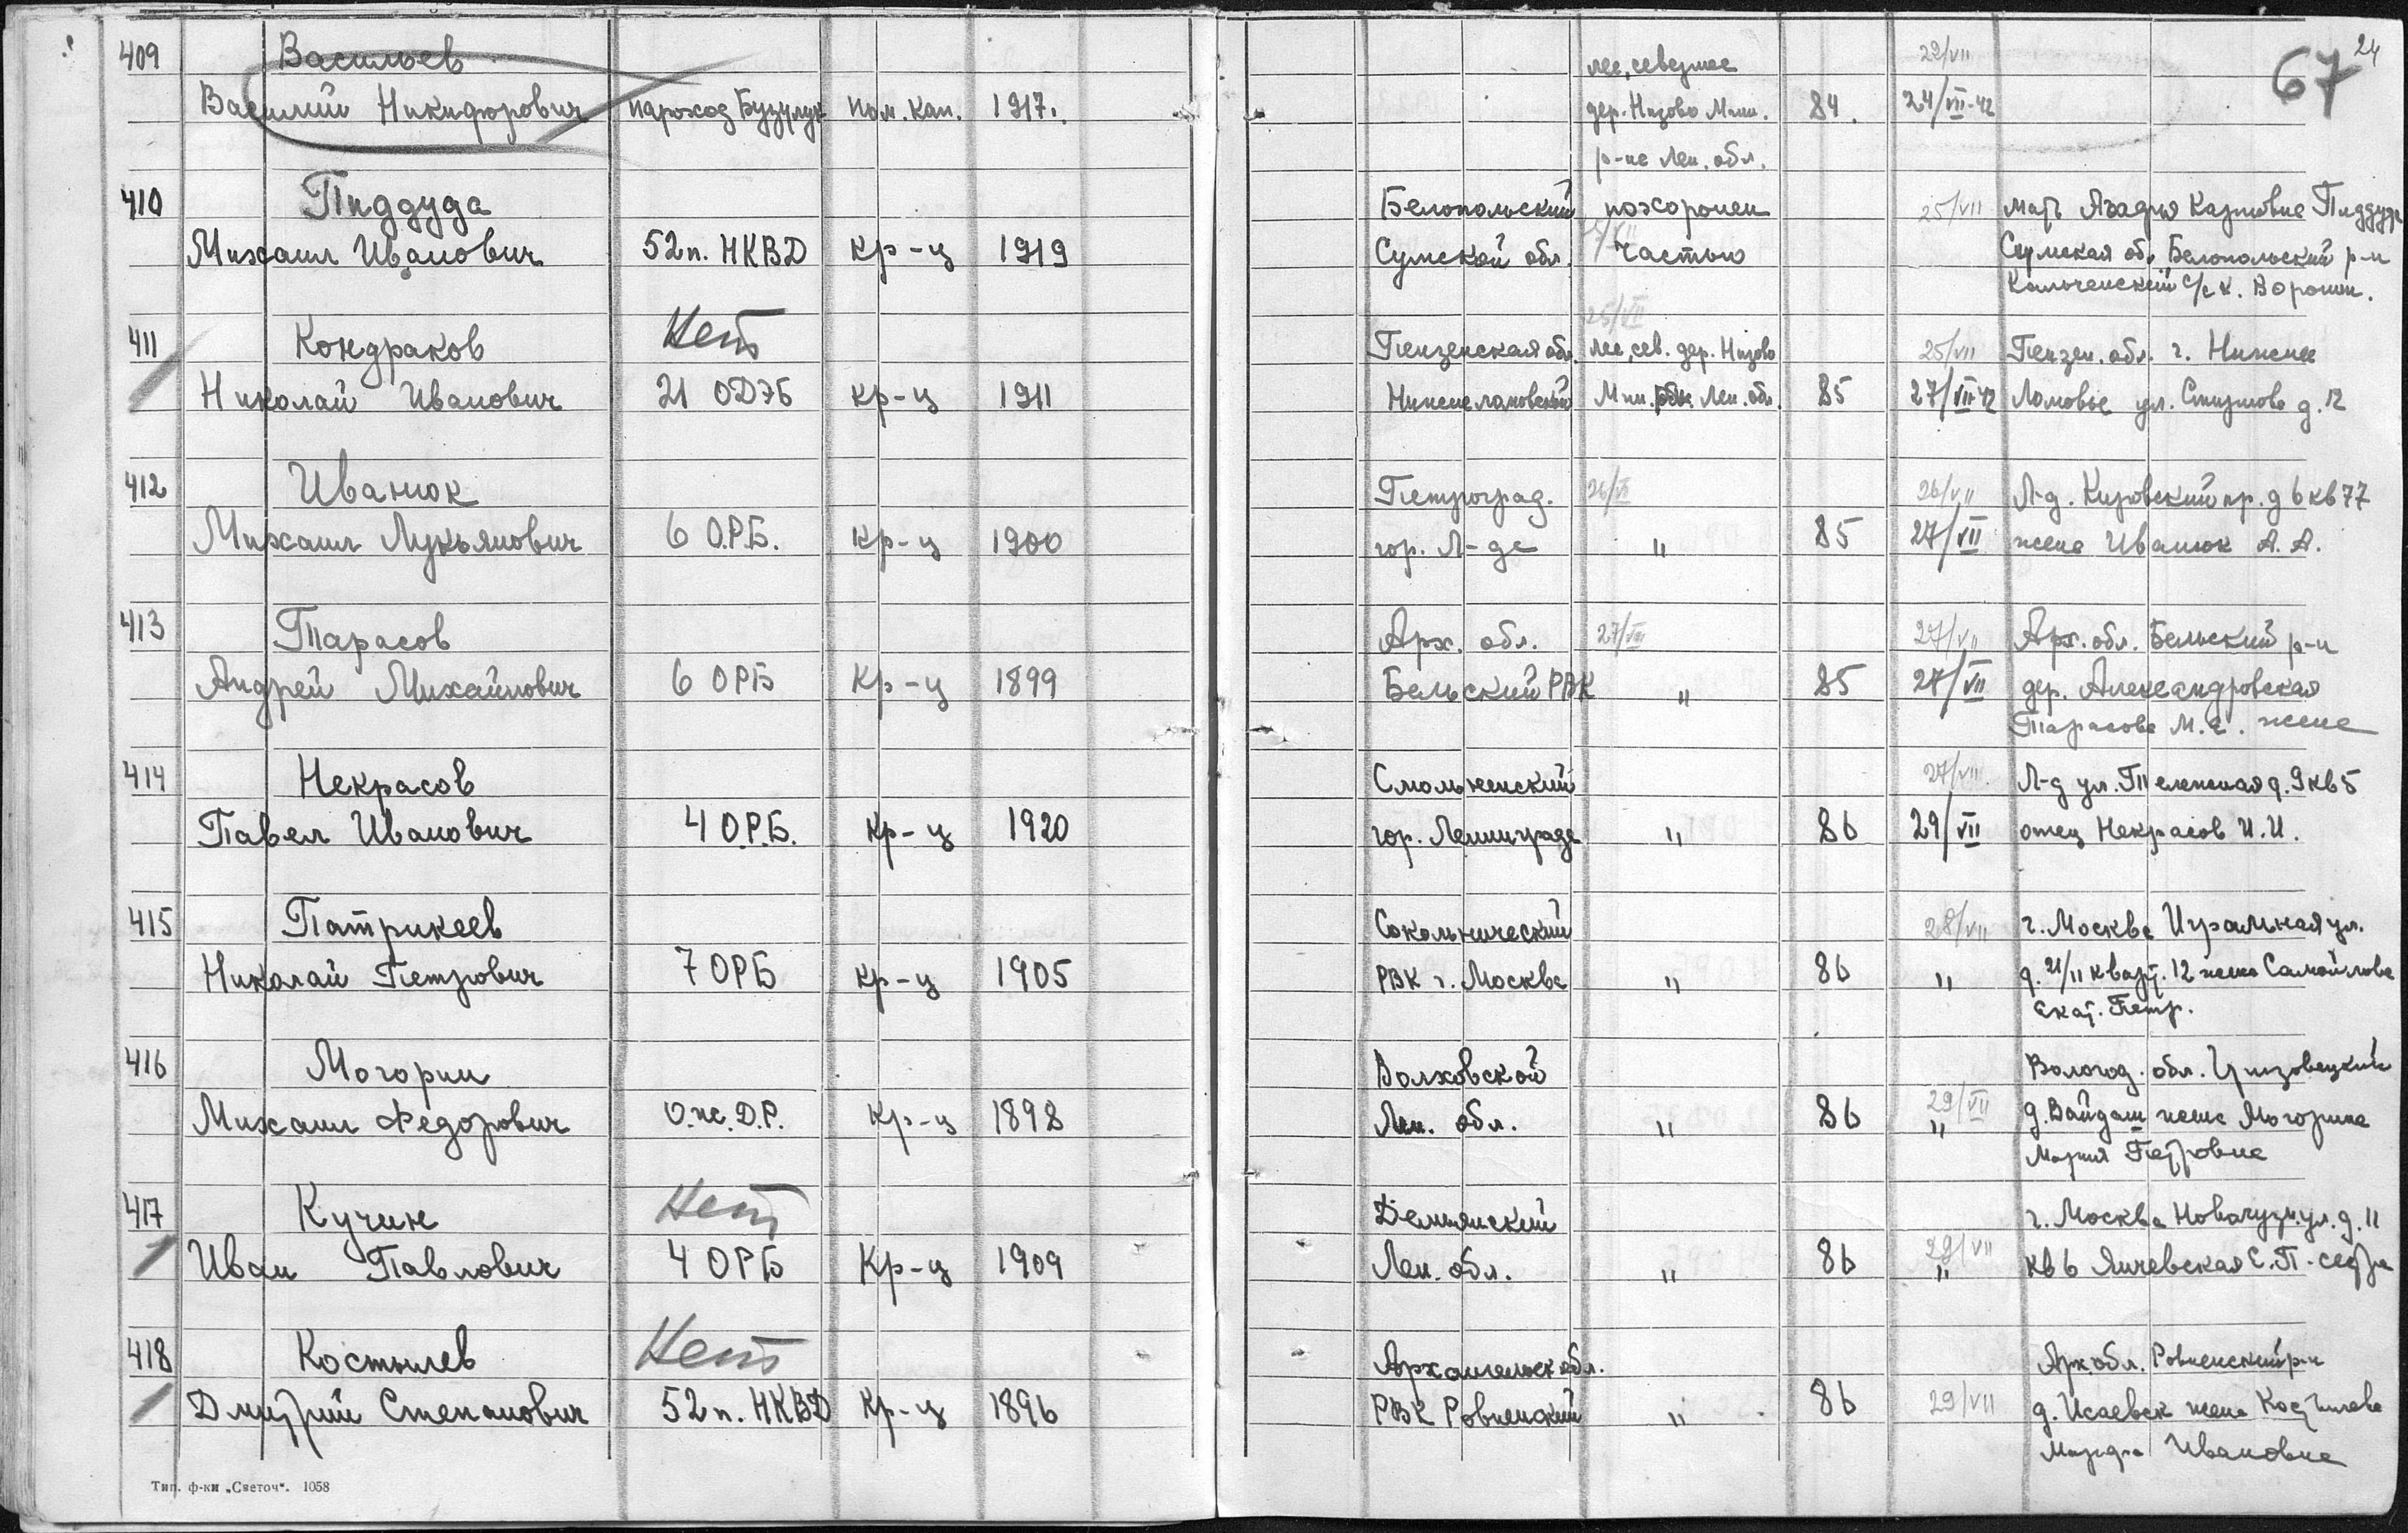 67 24
409 Васильев лес, севернее 22/VII
Василий Никифорович пароход Бузулук пом. кап. 1917. дер. Низово Мгин. 84. 24/VII-42
р-на Лен. обл.
410 Пиддуда Белопольский похоронен 25/VII мать Агадия Пиддуда
Михаил Иванович 52 п. НКВД кр-ц 1919 Сумской обл. частью Сумская об. Белопольский р-н
с/с х. Ворожи.
25/VII
411 Кондраков Нет Пензенская обл. лес, сев. дер. Низово 25/VII Пензен. обл. г. Нижне
Николай Иванович 21 ОДЭБ кр-ц 1911 Нижнеломовский Мгин. Лен. обл. 85 27/VII-42 Ломовье ул. д. 12
412 Иванюк Петроград. 26/VII 26/VII Л-д. Кировский пр. д 6 кв 77
Михаил Лукьянович 6 О.Р.Б. кр-ц 1900 гор. Л-да " 85 27/VII жена Иванюк А. А.
413 Тарасов Арх. обл. 27/VII 27/VII Арх. обл. Бельский р-н
Андрей Михайлович 6 ОРБ Кр-ц 1899 Бельский РВК " 85 27/VII дер. Александровская
Тарасова М. Е. жена
414 Некрасов Смольнинский 27/VII Л-д ул. Тележная д. 9 кв 5
Павел Иванович 4 О.Р.Б. кр-ц 1920 гор. Ленинграда " 86 29/VII отец Некрасов И. И.
415 Патрикеев Сокольнический 28/VII г. Москва Игральная ул.
Николай Петрович 7 ОРБ кр-ц 1905 РВК г. Москва " 86 " д. 21/11 кварт. 12 жена Самойлова
Екат. Петр.
416 Могорин Волховской Вологод. обл. Грязовецкий
Михаил Федорович О.ж.Д.Р. Кр-ц 1898 Лен. обл. " 86 29/VII " д. Вайдаш жена Могорина
Мария Петровна
417 Кучин Нет Демянский г. Москва ул. д. 11
Иван Павлович 4 ОРБ Кр-ц 1909 Лен. обл. " 86 29/VII " кв 6 Яичевская Е. П. сестра
418 Костылев Нет Архангельск обл. Арх обл. Ровненский р-н
Дмитрий Степанович 52 п. НКВД Кр-ц 1896 РВК Ровненский " 86 29/VII д. Исаевск жена Костылева
Ивановна
Тип. ф-ки „Светоч“. 1058